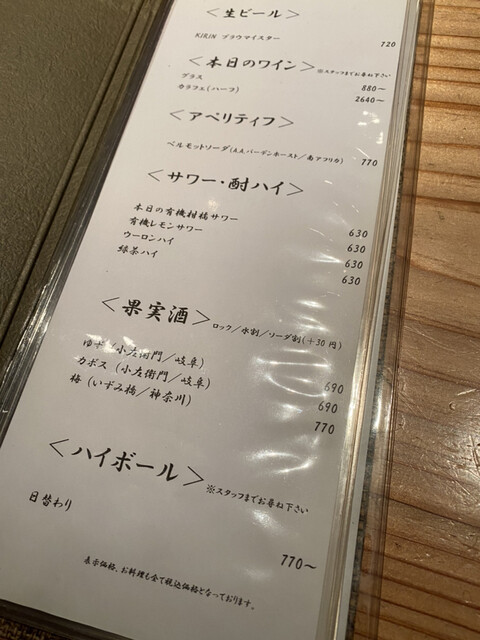 ＜生ビール＞
KIRIN ブラウマイスター 720
＜本日のワイン＞ ※スタッフまでお尋ね下さい
グラス 880～
カラフェ(ハーフ) 2640～
＜アペリティフ＞
ベルモットソーダ(A.A.バーデンホースト／南アフリカ) 770
＜サワー・酎ハイ＞
本日の有機柑橘サワー 630
有機レモンサワー 630
ウーロンハイ 630
緑茶ハイ 630
＜果実酒＞ ロック／水割／ソーダ割(＋30円)
ゆず (小左衛門／岐阜) 690
カボス (小左衛門／岐阜) 690
梅 (いずみ橋／神奈川) 770
＜ハイボール＞ ※スタッフまでお尋ね下さい
日替わり 770～
表示価格、お料理も全て税込価格となっております。